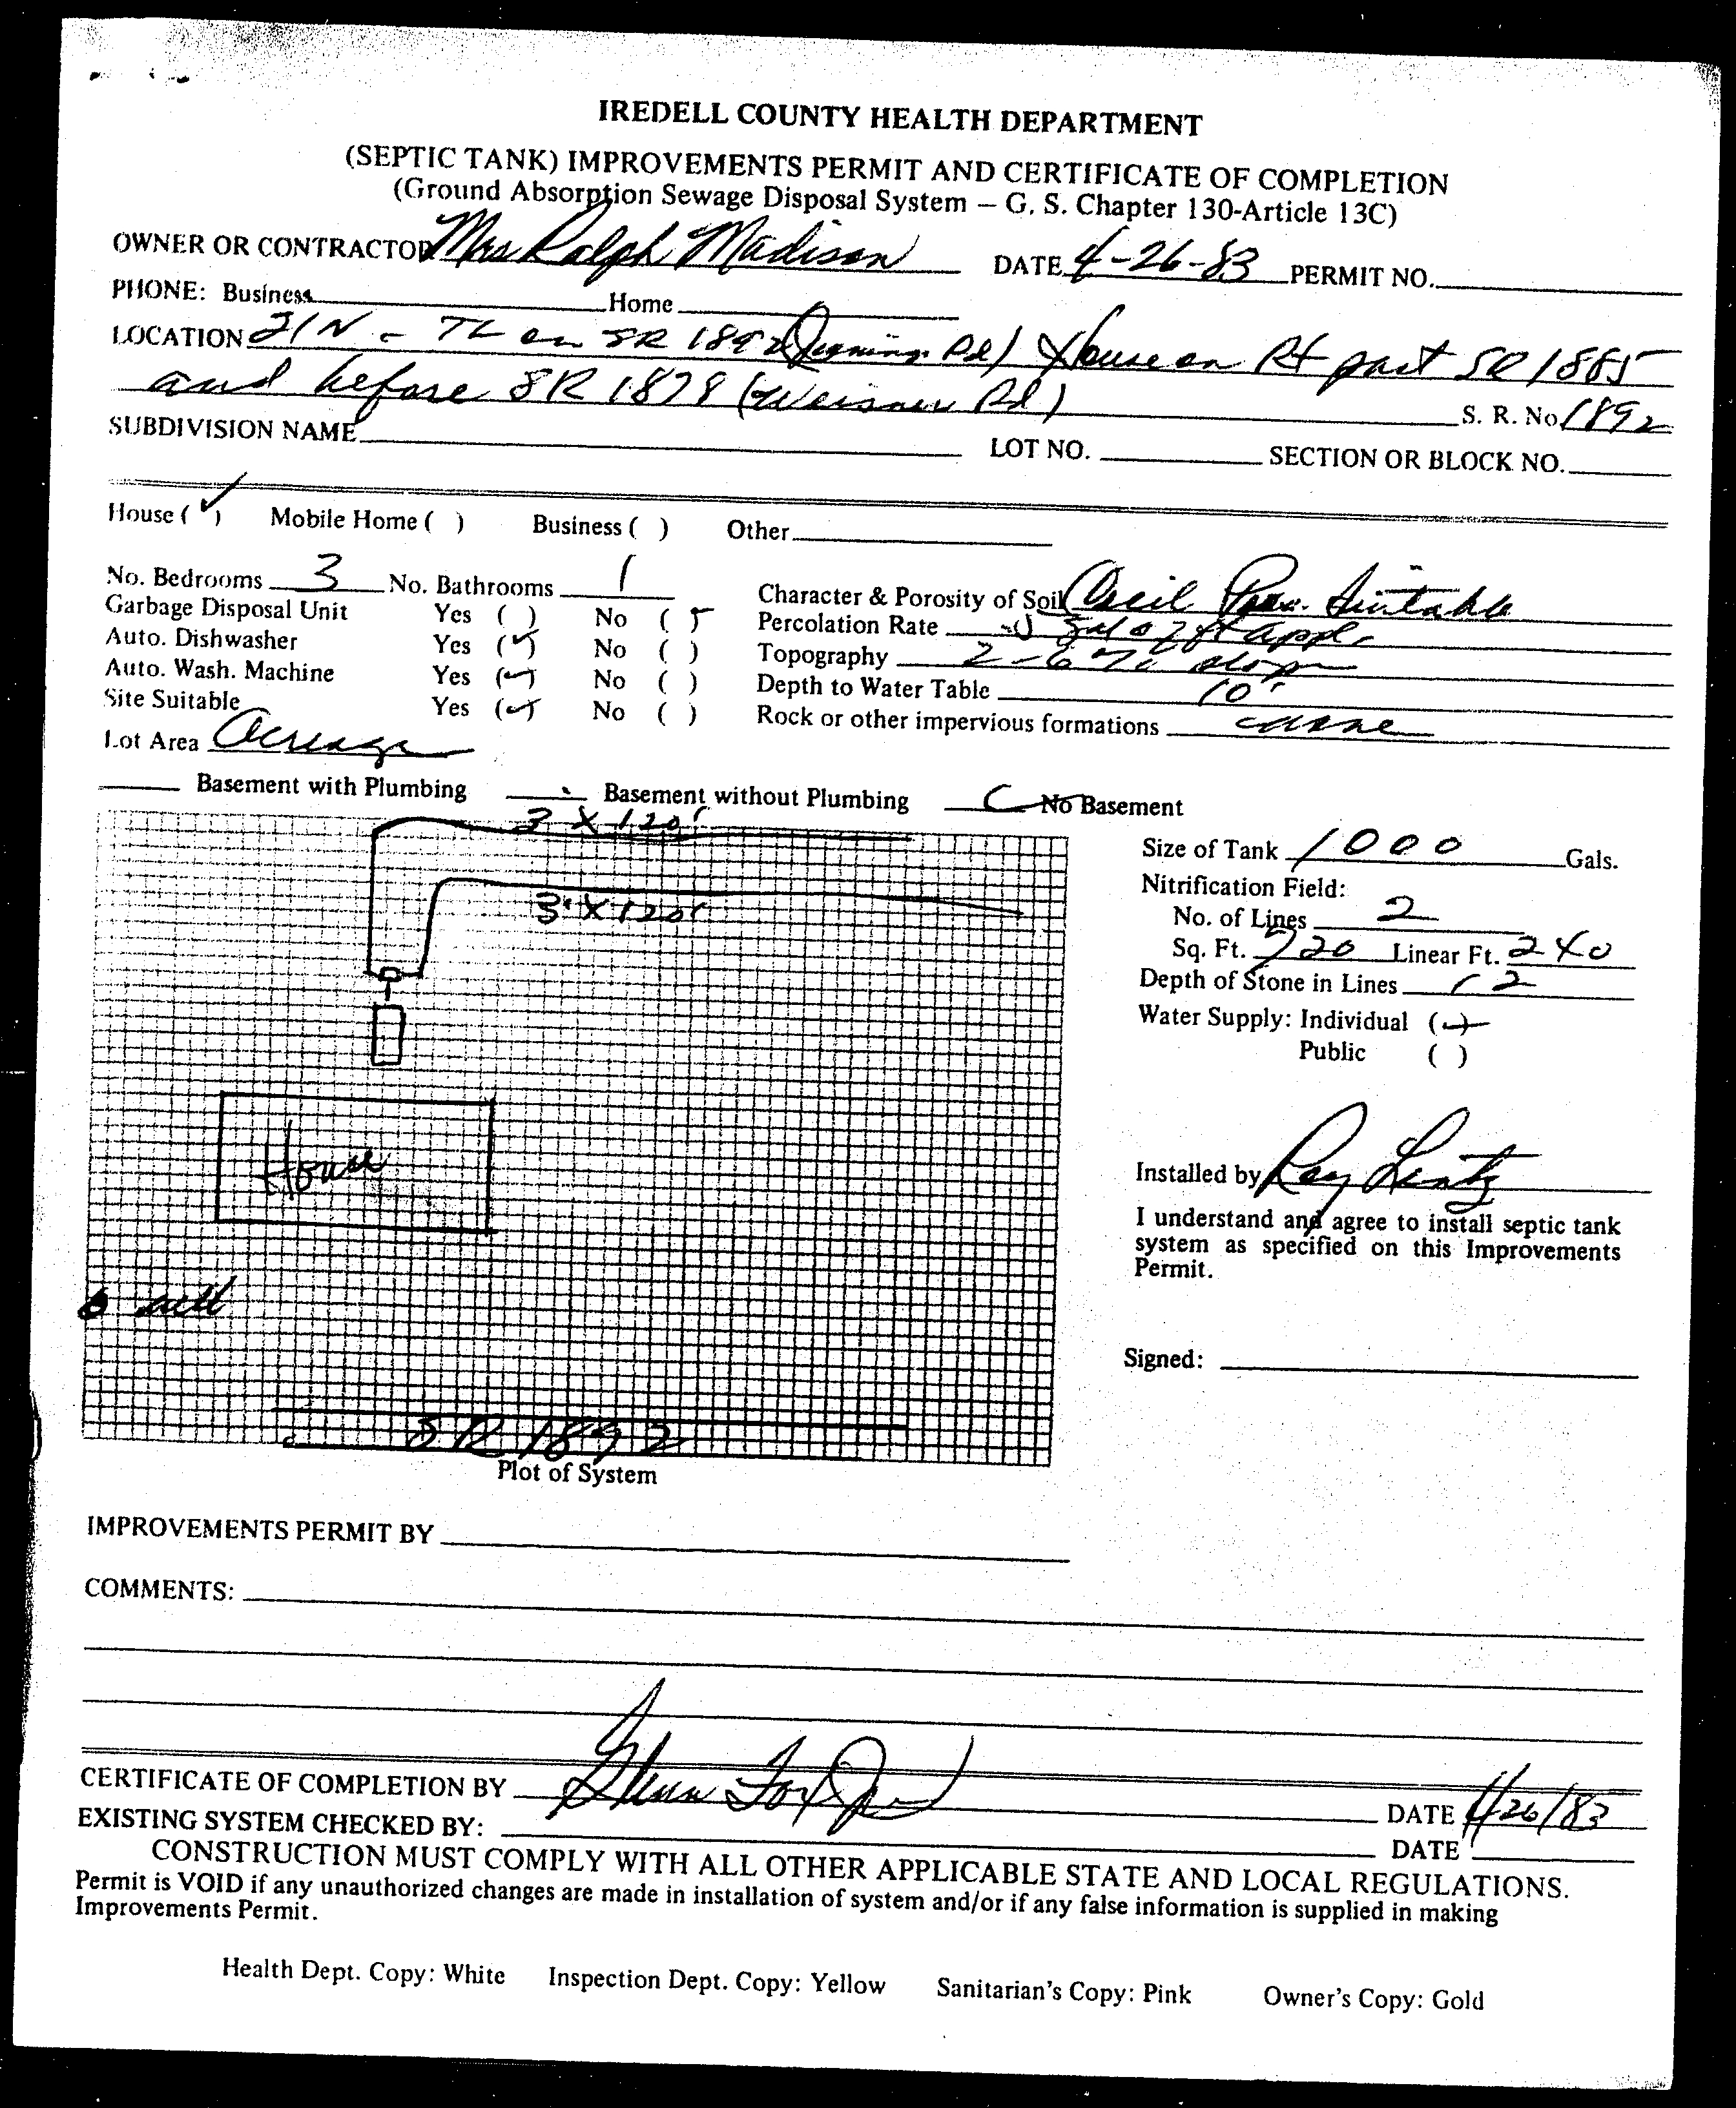 IREDELL COUNTY HEALTH DEPARTMENT
(SEPTIC TANK) IMPROVEMENTS PERMIT AND CERTIFICATE OF COMPLETION
(Ground Absorption Sewage Disposal System – G. S. Chapter 130-Article 13C)
OWNER OR CONTRACTOR Mrs Ralph Madison DATE 4-26-83 PERMIT NO.
PHONE: Business Home
LOCATION 21N - TL on SR 1892 Rd) House on Rt past SR 1885
and before SR 1878 (Weisner Rd) S. R. No 1892
SUBDIVISION NAME LOT NO. SECTION OR BLOCK NO.
House (✓) Mobile Home ( ) Business ( ) Other
No. Bedrooms 3 No. Bathrooms 1
Garbage Disposal Unit Yes ( ) No (✓)
Auto. Dishwasher Yes (✓) No ( )
Auto. Wash. Machine Yes (✓) No ( )
Site Suitable Yes (✓) No ( )
Lot Area Acreage
Character & Porosity of Soil Cecil Prov. Suitable
Percolation Rate
Topography 2-6% slope
Depth to Water Table 10'
Rock or other impervious formations
Basement with Plumbing Basement without Plumbing ✓ No Basement
3 X 120'
3' X 120'
House
well
SR 1892
Plot of System
Size of Tank 1000 Gals.
Nitrification Field:
No. of Lines 2
Sq. Ft. 720 Linear Ft. 240
Depth of Stone in Lines 12
Water Supply: Individual (✓)
Public ( )
Installed by Ray Lentz
I understand and agree to install septic tank
system as specified on this Improvements
Permit.
Signed:
IMPROVEMENTS PERMIT BY
COMMENTS:
CERTIFICATE OF COMPLETION BY Glenn Fox Jr DATE 4/26/83
EXISTING SYSTEM CHECKED BY: DATE
CONSTRUCTION MUST COMPLY WITH ALL OTHER APPLICABLE STATE AND LOCAL REGULATIONS.
Permit is VOID if any unauthorized changes are made in installation of system and/or if any false information is supplied in making
Improvements Permit.
Health Dept. Copy: White Inspection Dept. Copy: Yellow Sanitarian's Copy: Pink Owner's Copy: Gold